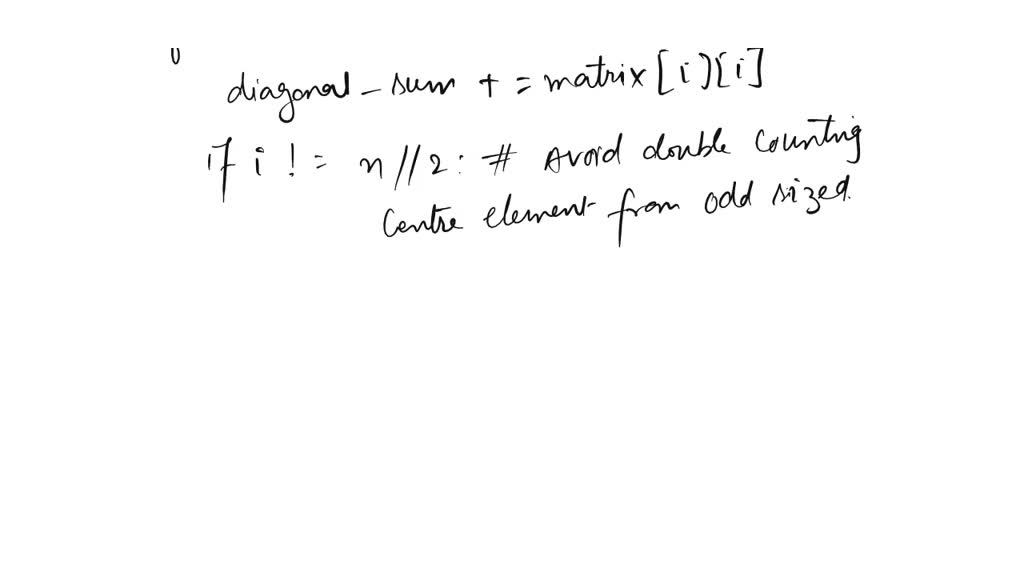 diagonal_sum += matrix[i][i]
if i != n//2: # Avoid double counting
centre element from odd sized.